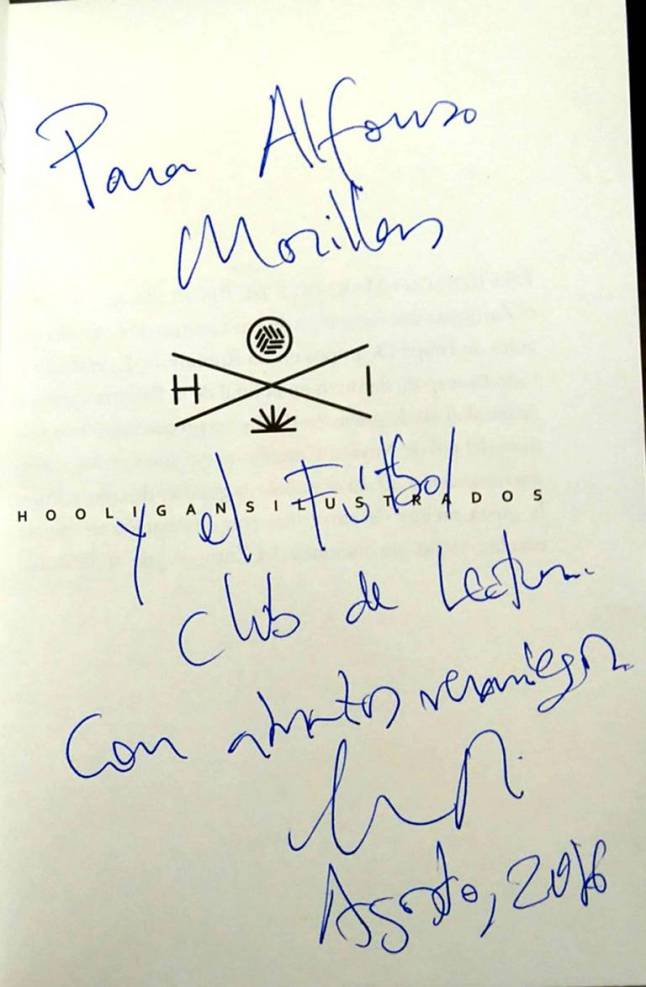 Para Alfonso
Morillas
H I
HOOLIGANSILUSTRADOS
y el Fútbol
Club de Lectura.
Con abrazos veraniegos
Agosto, 2016